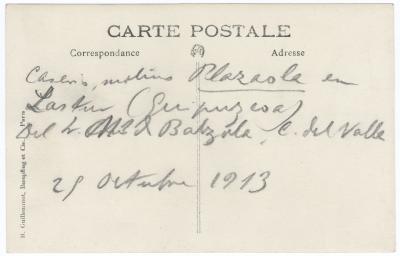 CARTE POSTALE
Correspondance
Adresse
Caserio, molino Plazaola en
Lastur (Guipuzcoa)
Del Balzola, C. del Valle
25 Octubre 1913
H. Guilleminot, Bœspflug et Cie. Paris